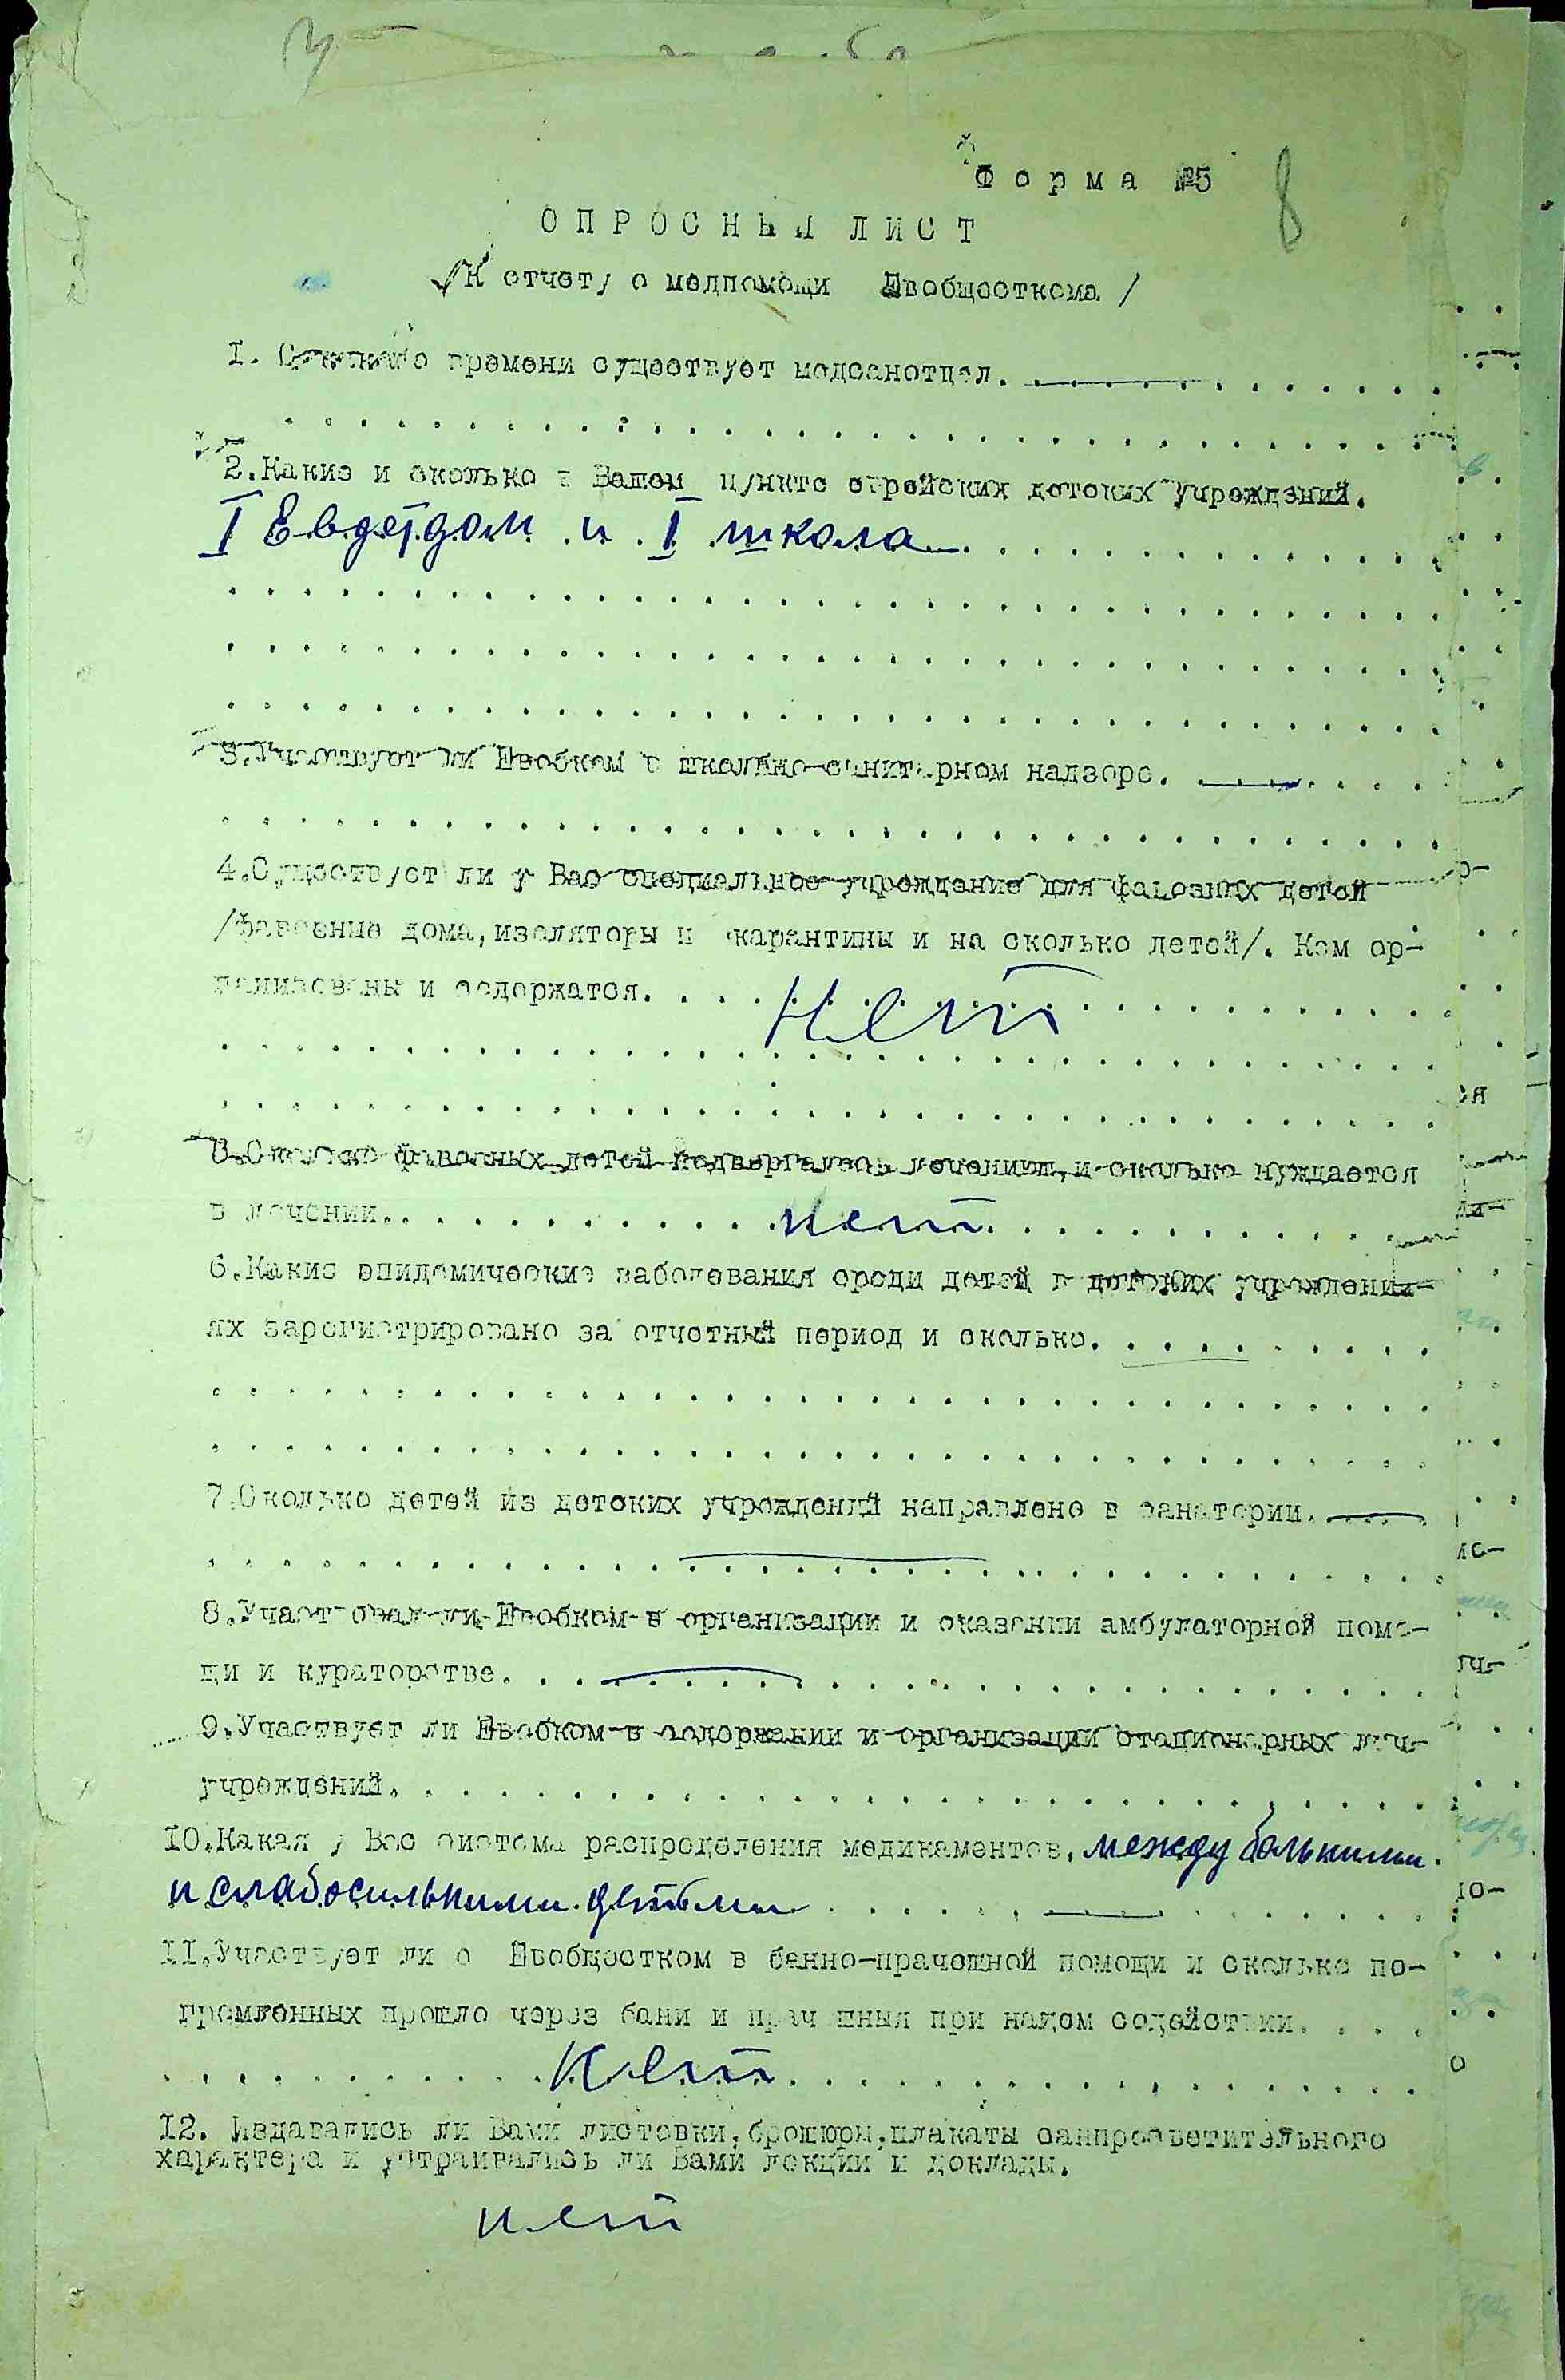 Форма №5
8
ОПРОСНЫЙ ЛИСТ
/К отчету о медпомощи Евобщесткома/
1. С какого времени существует медсанотдел.
2.Какие и сколько в Вашем пункте еврейских детских учреждений.
I Евдетдом и I школа
3.Участвует ли Евобком в школьно-санитарном надзоре.
4.Существует ли у Вас специальное учреждение для фавозных детей
/фавозные дома,изоляторы и карантины и на сколько детей/. Кем ор-
ганизованы и содержатся.
Нет
5.Сколько фавозных детей подвергалось лечению,и сколько нуждается
в лечении. нет
6.Какие эпидемические заболевания среди детей в детских учреждени-
ях зарегистрировано за отчетный период и сколько.
7.Сколько детей из детских учреждений направлено в санатории.
8.Участвовал-ли-Евобком-в организации и оказании амбулаторной помо-
щи и кураторстве.
9.Участвует ли Евобком-в содержании и организации стационарных леч-
учреждений.
10.Какая у Вас система распределения медикаментов. между больными
и слабосильными детьми
11.Участвует ли о Евобщестком в банно-прачешной помощи и сколько по-
громленных прошло через бани и прачешныя при нашем содействии.
нет
12. Издавались ли Вами листовки,брошюры,плакаты санпросветительного
характера и устраивались ли Вами лекции и доклады.
нет